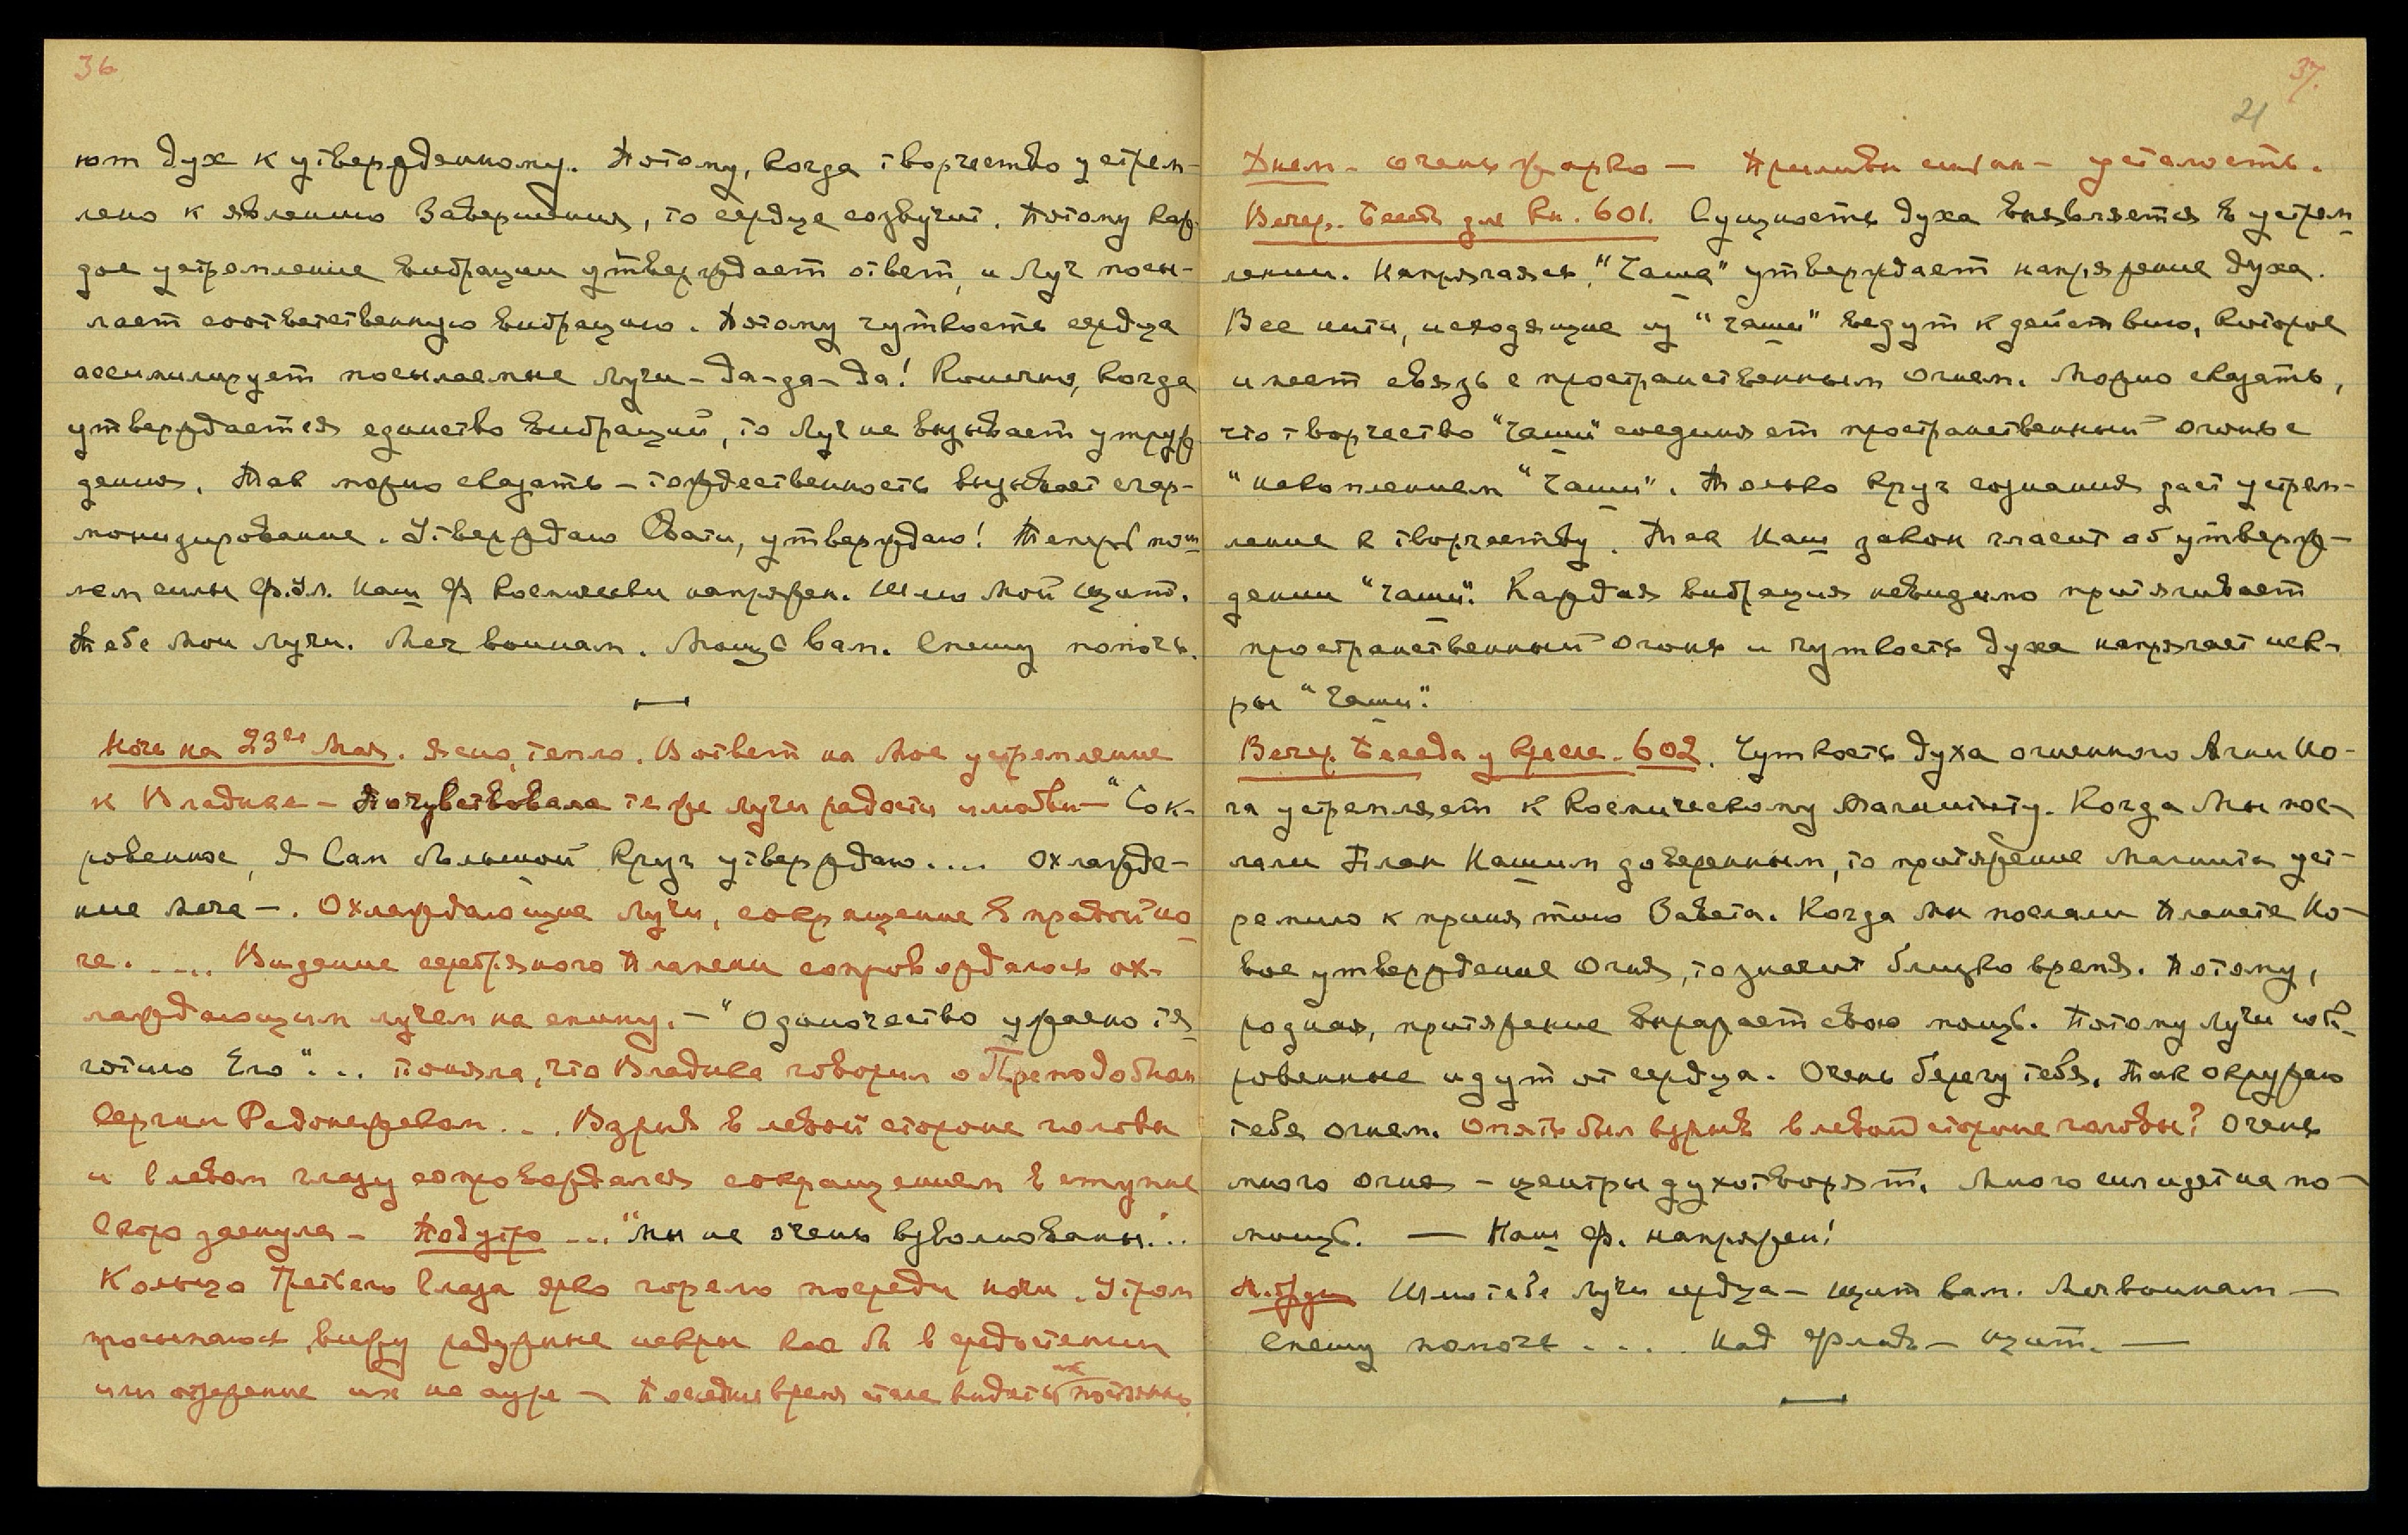 36
ют дух к утвержденному. Потому, когда творчество устрем-
лено к явлению Завершения, то сердце созвучит. Потому каж-
дое устремление вибрации утверждает ответ, и Луч посы-
лает соответственную вибрацию. Потому чуткость сердца
ассимилирует посылаемые Лучи – да-да-да! Конечно, когда
утверждается единство вибраций, то Луч не вызывает утруж
дения. Так можно сказать – тождественность вызывает сгар-
монизирование. Утверждаю Свати, утверждаю! Теперь пош
лем силы Ф. Ул. Наш Ф космически напряжен. Шлю Мой Щит.
Тебе Мои Лучи. Меч воинам. Мощь вам. Спешу помочь.
Ночь на 23ье Мая. Ясно, тепло. В ответ на Мое устремление
к Владыке – Почувствовала те же лучи радости и любви – "Сок-
ровенное, Я Сам большой круг утверждаю.... охлажде-
ние меча –. Охлаждающие Лучи, сокращение в правой но
ге. .... Видение серебряного Пламени сопровождалось ох-
лаждающим лучем на спину. – "Одиночество ужасно тя
готило Его"... поняла, что Владыка говорил о Преподобном
Сергии Радонежском... Взрыв в левой стороне головы
и в левом глазу сопровождался сокращением в ступне
Скоро заснула – Под утро ... "мы не очень взволнованы"..
Кольцо Третьего Глаза ярко горело посреди ночи. Утром
просыпаюсь, вижу радужные искры как бы в средостении
или отражение их на ауре – Последнее время стала видеть их постоянно
37.
21
Днем – очень жарко – Приливы – усталость.
Вечер. Бесед. для Кн. 601. Сущность духа выявляется в устрем
лении. Напрягаясь, "Чаша" утверждает напряжение духа.
Все нити, исходящие из "чаши" ведут к действию, которое
имеет связь с пространственным огнем. Можно сказать,
что творчество "Чаши" соединяет пространственный огонь с
"накоплением "Чаши". Только круг сознания дает устрем-
ление к творчеству. Так Наш закон гласит об утверж-
дении "чаши". Каждая вибрация невидимо притягивает
пространственный огонь и чуткость духа напрягает иск-
ры "Чаши".
Вечер. Беседа у кресла. 602. Чуткость духа огненного Агни Йо-
га устремляет к Космическому Магниту. Когда Мы пос-
лали План Нашим доверенным, то притяжение Магнита уст-
ремило к принятию Завета. Когда Мы послали Планете Но-
вое утверждение Огня, то значит близко время. Потому,
родная, притяжение выражает свою мощь. Потому Лучи сок-
ровенные идут от сердца. Очень берегу тебя. Так окружаю
тебя огнем. Опять был взрыв в левой стороне головы? Очень
много огня – центры духотворят. Много сил идет на по-
мощь. — Наш Ф. напряжен!
Шлю тебе Лучи сердца – щит вам. Меч воинам —
Спешу помочь . . . . Над – щит. —